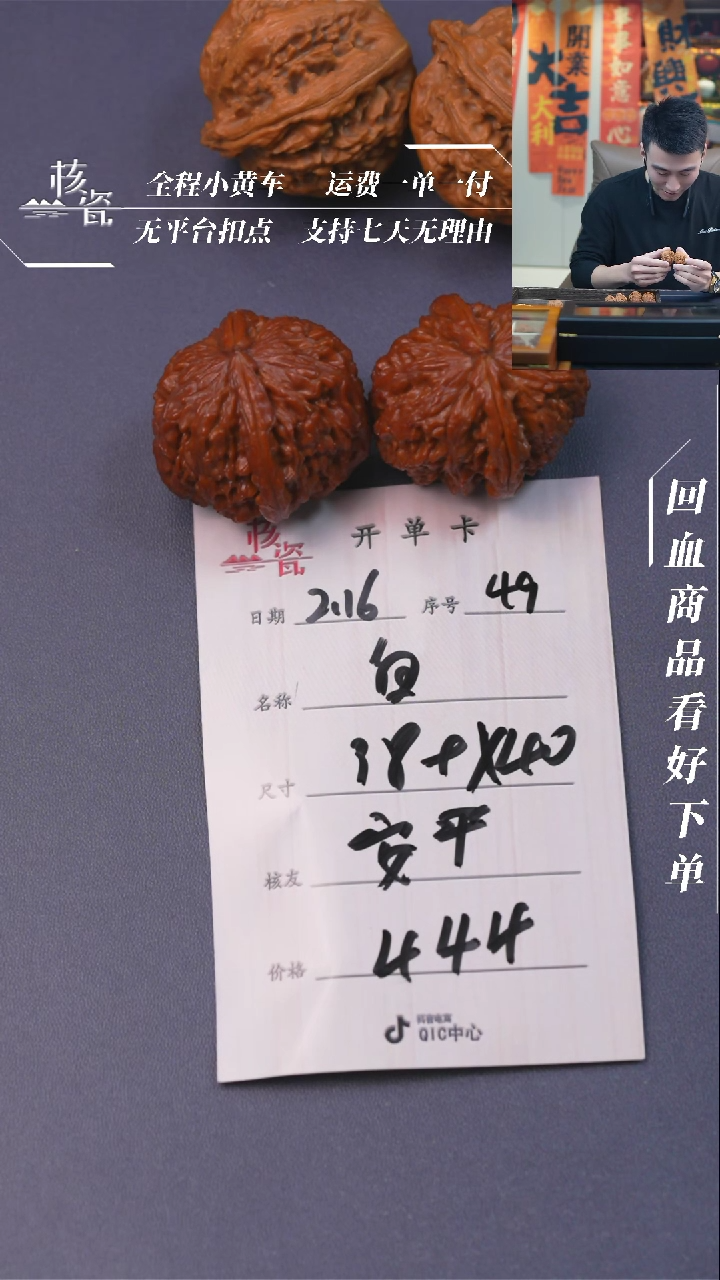 核瓷
全程小黄车 运费一单一付
无平台扣点 支持七天无理由
開業
大吉
大利
事事如意
心
財興
回血商品看好下单
核瓷 开单卡
日期 2.16 序号 49
名称
尺寸 38+X40
核发 安平
价格 444
抖音电商
QIC中心